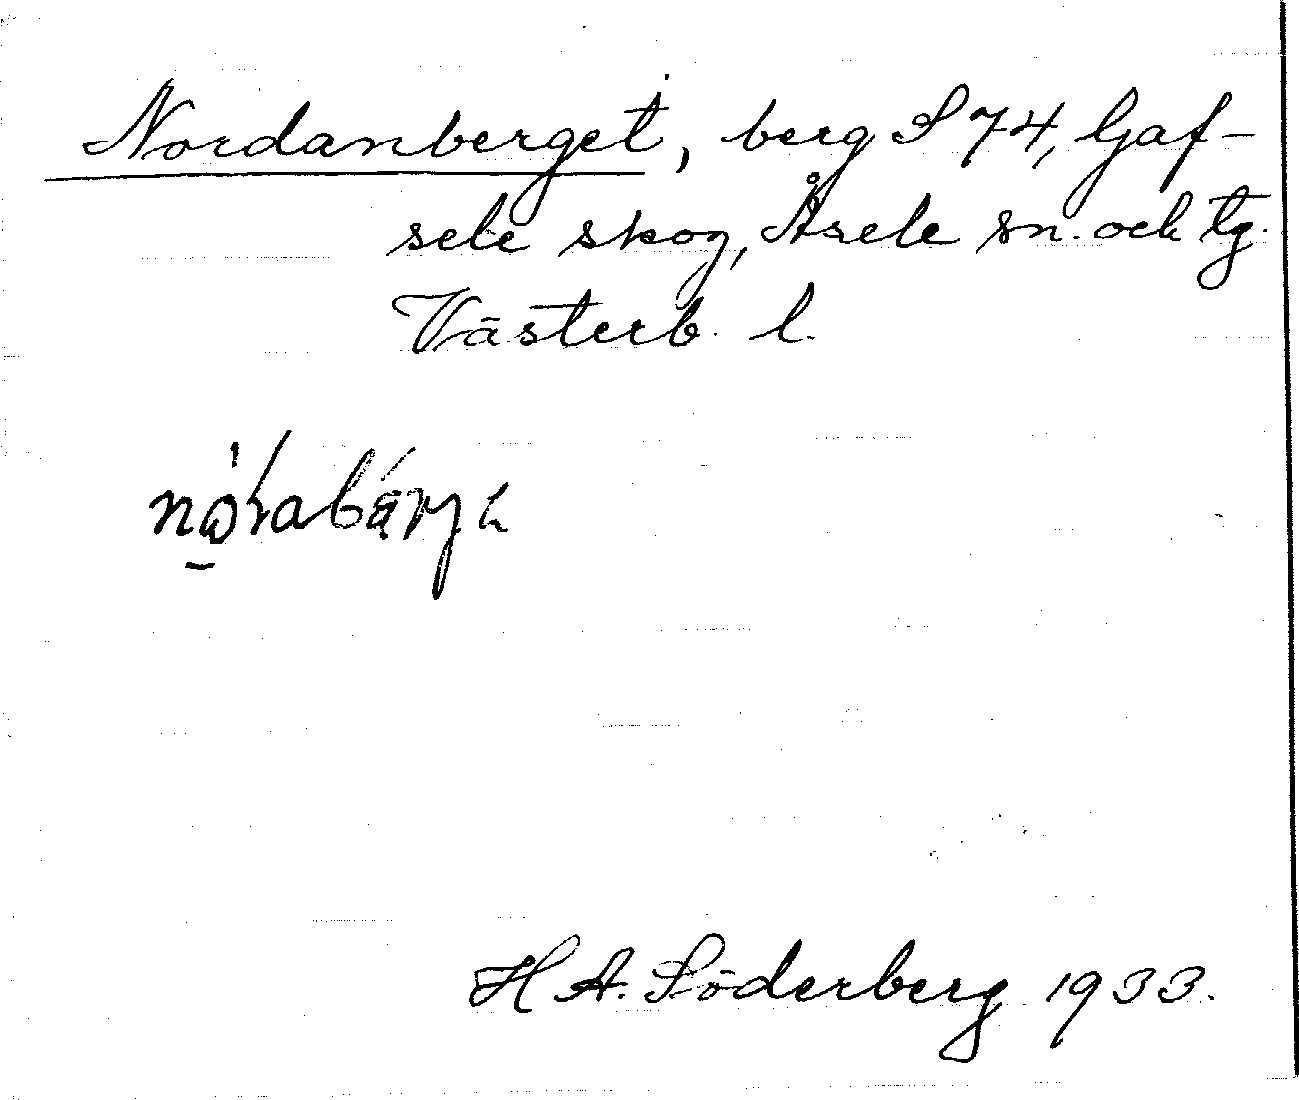 Nordanberget, berg S 74, Gaf-
sele skog, Åsele sn. och tg.
Västerb. l.
H A. Söderberg 1933.